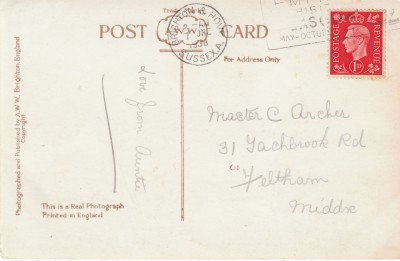 Trade
POST CARD
A.W.W.
BRIGHTON & HOVE
1938
SUSSEX.A.
MAY-OCTOBER
POSTAGE REVENUE
1D
For Address Only
Photographed and Published by A.W.W. Brighton, England
Love from Auntie
Master C Archer
31 Tachbrook Rd
Feltham
Middx
This is a Real Photograph
Printed in England